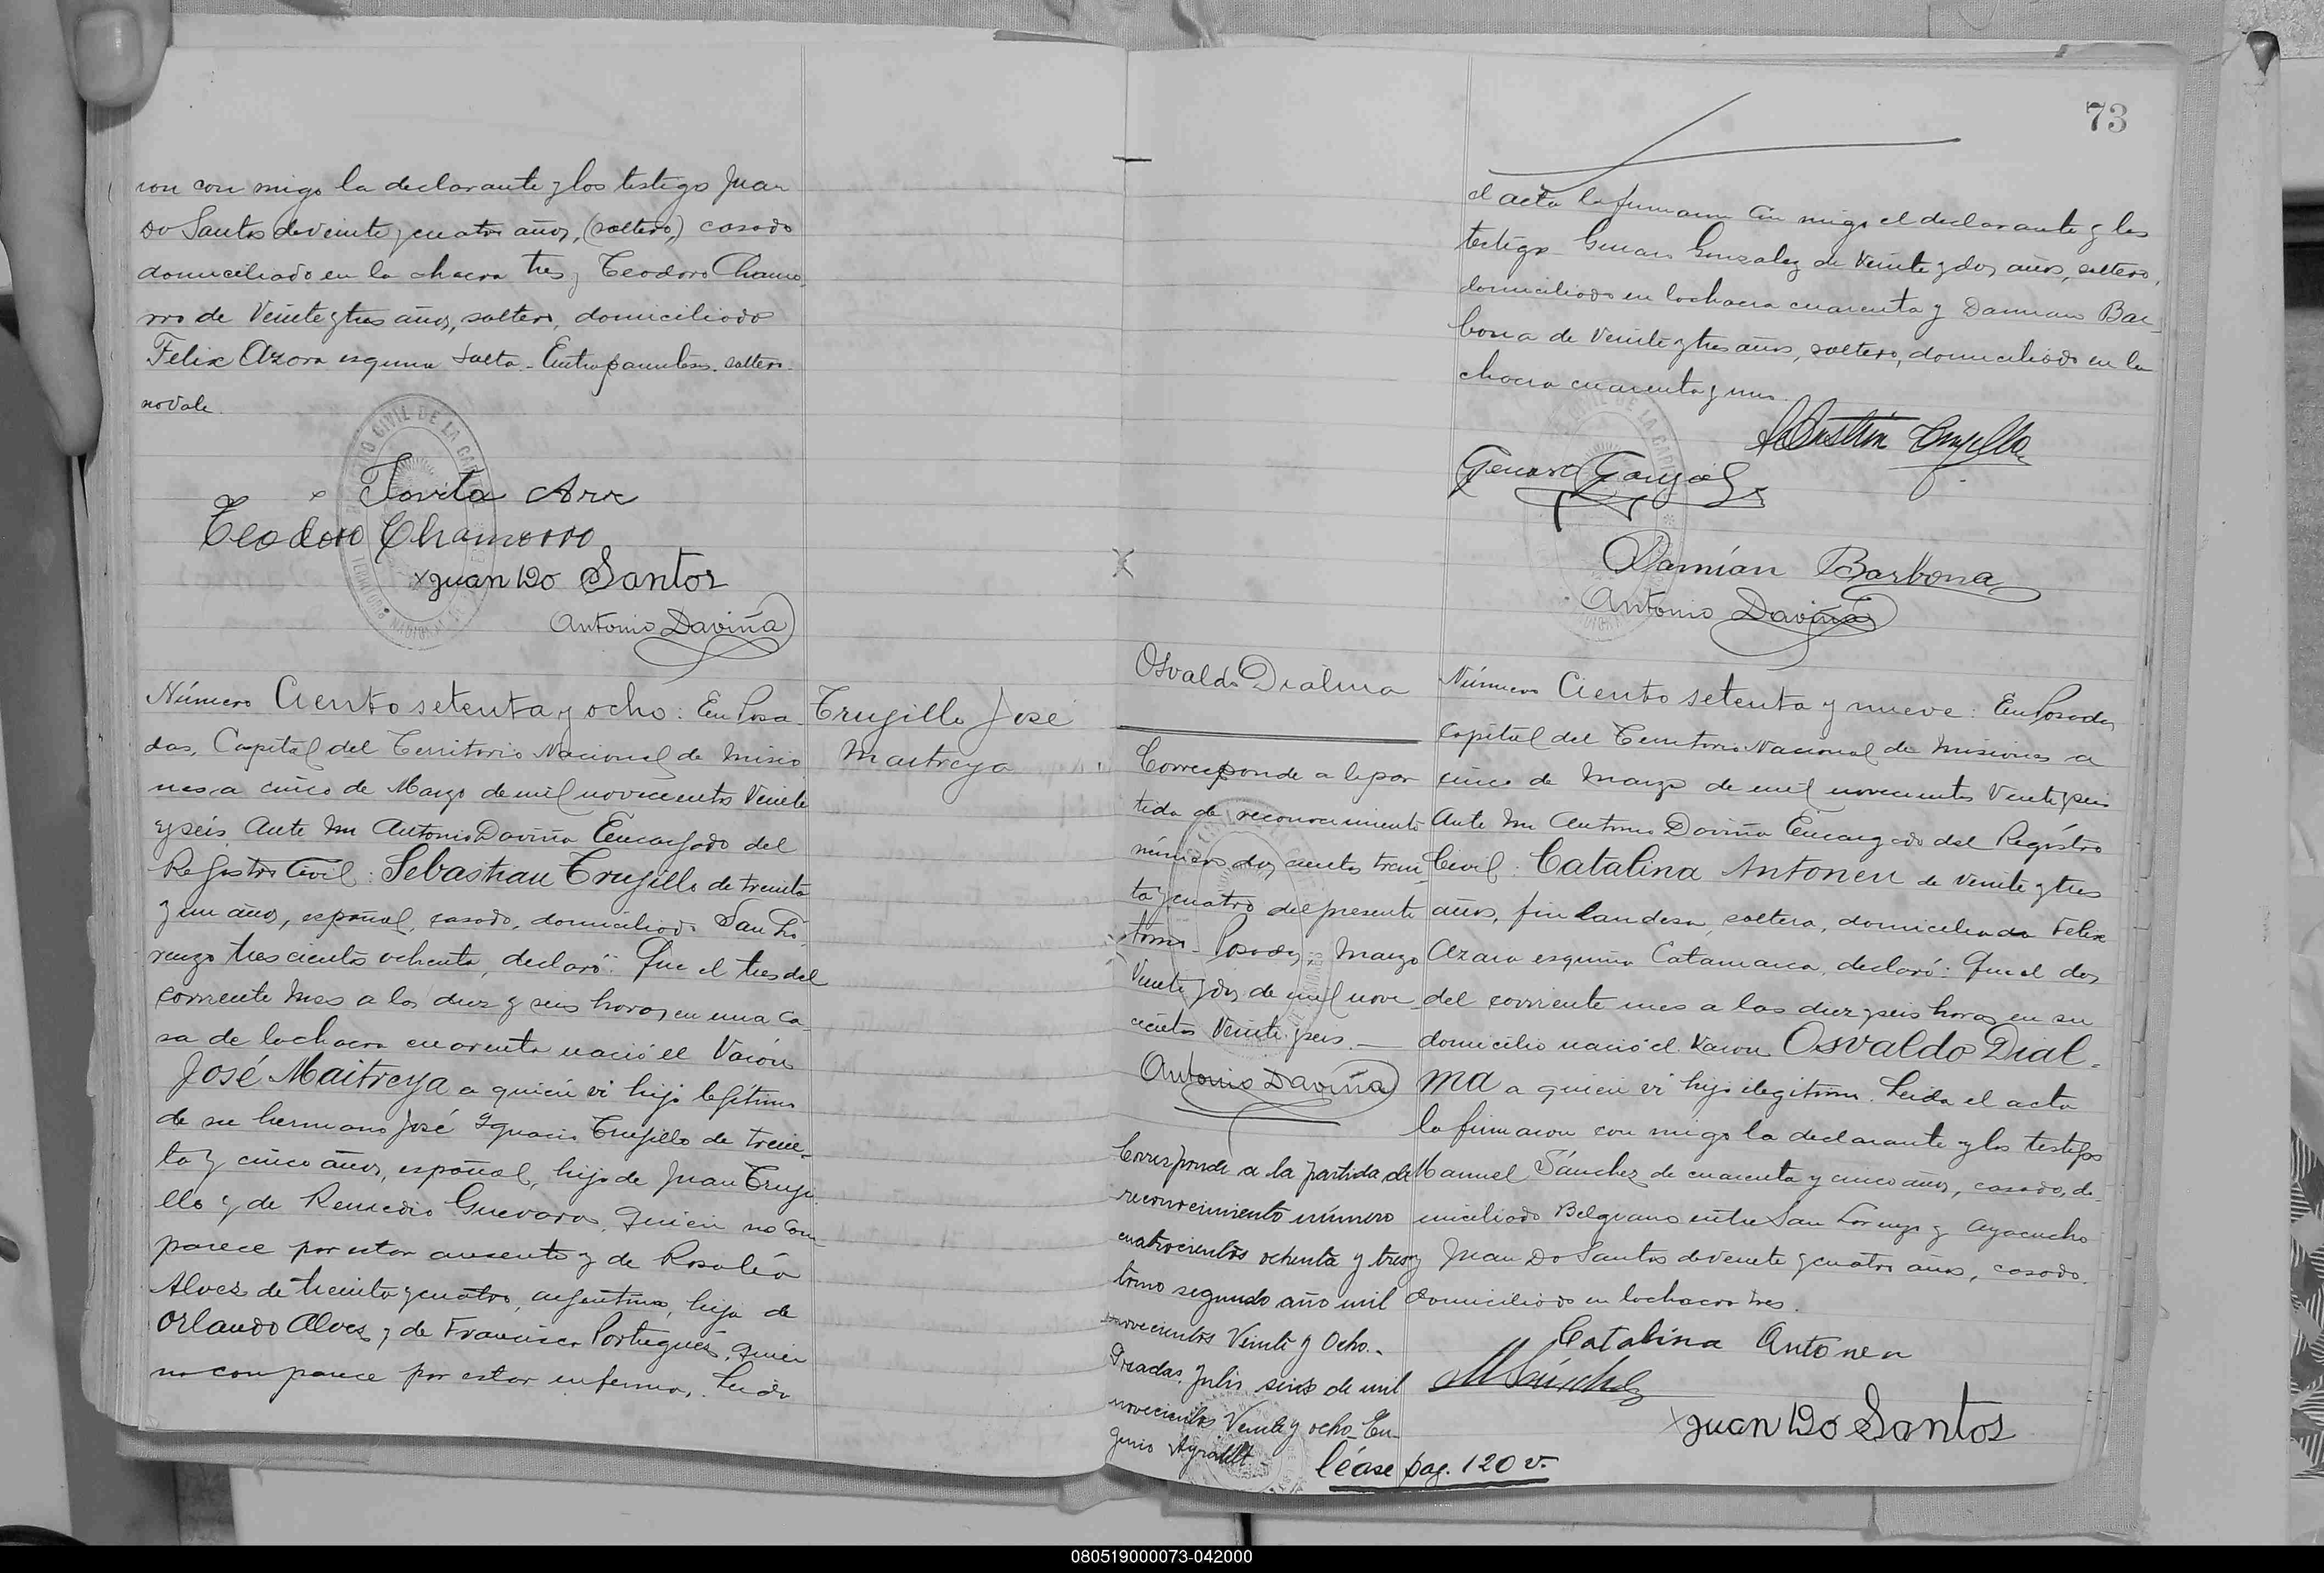 ron con migo la declarante y los testigo Juan
Do Santos de veinte y cuatro años, (soltero,) casado
domiciliado en la chacra tres y Teodoro Chamo
rro de Veinte y tres años, soltero, domiciliado
Felix Azara esquina Salta. Entre parentesis. soltero.
no vale.
Jovita Arr
Teodoro Chamorro
x Juan Do Santos
Antonio Daviña
Número Ciento setenta y ocho: En Posa
das, Capital del Territorio Nacional de Misio
nes a cinco de Marzo de mil novecientos Veinte
y seis Ante mi Antonio Daviña Encargado del
Registro Civil: Sebastian Trujillo de treinta
y un años, español, casado, domiciliado San Lo
renzo tres cientos ochenta, declaró: Que el tres del
corriente mes a las diez y seis horas en una ca
sa de la chacra cuarenta nació el Varón
José Maitreya a quien vi hijo lejítimo
de su hermano José Ygnacio Trujillo de trein
ta y cinco años, español, hijo de Juan Truji
llo y de Remedio Guevara, quien no com
parece por estar ausente y de Rosalía
Alvez de treinta y cuatro, argentina, hija de
Orlando Alves y de Francisca Portugués, quien
no comparece por estar enferma. Leida
Trujillo José
Maitreya
73
el acta la firmaron con migo el declarante y los
testigo Genaro Gonzalez de Veinte y dos años, soltero,
domiciliado en la chacra cuarenta y Damian Bar
bona de Veinte y tres años, soltero, domiciliado en la
chacra cuarenta y uno.
Sebastián Trujillo
Genaro Gonzalez
Damían Barbona
Antonio Daviña
Osvaldo Dialma
Corresponde a la par
tida de reconocimiento
número dos cientos trein
ta y cuatro del presente
tomo. Posadas, Marzo
Veinte y dos de mil nove
cientos Veinte y seis.
Antonio Daviña
Corresponde a la partida de
reconocimiento número
cuatrocientos ochenta y tres
tomo segundo año mil
novecientos Veinte y Ocho.
Posadas, Julio seis de mil
novecientos Veinte y ocho. Eu
genio
Número Ciento setenta y nueve: En Posadas
Capital del Territorio Nacional de Misiones a
cinco de Marzo de mil novecientos Veinte y seis
Ante mi Antonio Daviña Encargado del Registro
Civil: Catalina Antonen de veinte y tres
años, finlandesa, soltera, domiciliada Felix
Azara esquina Catamarca, declaró: Que el dos
del corriente mes a las diez y seis horas en su
domicilio nació el Varon Osvaldo Dial-
ma a quien vi hijo ilegitimo. Leida el acta
la firmaron con migo la declarante y los testigos
Manuel Sánchez de cuarenta y cinco años, casado, do
miciliado Belgrano entre San Lorenzo y Ayacucho
y Juan Do Santos de veinte y cuatro años, casado.
domiciliado en la chacra tres.
Catalina Antonen
M Sánchez
x Juan Do Santos
léase pag. 120 v.
080519000073-042000